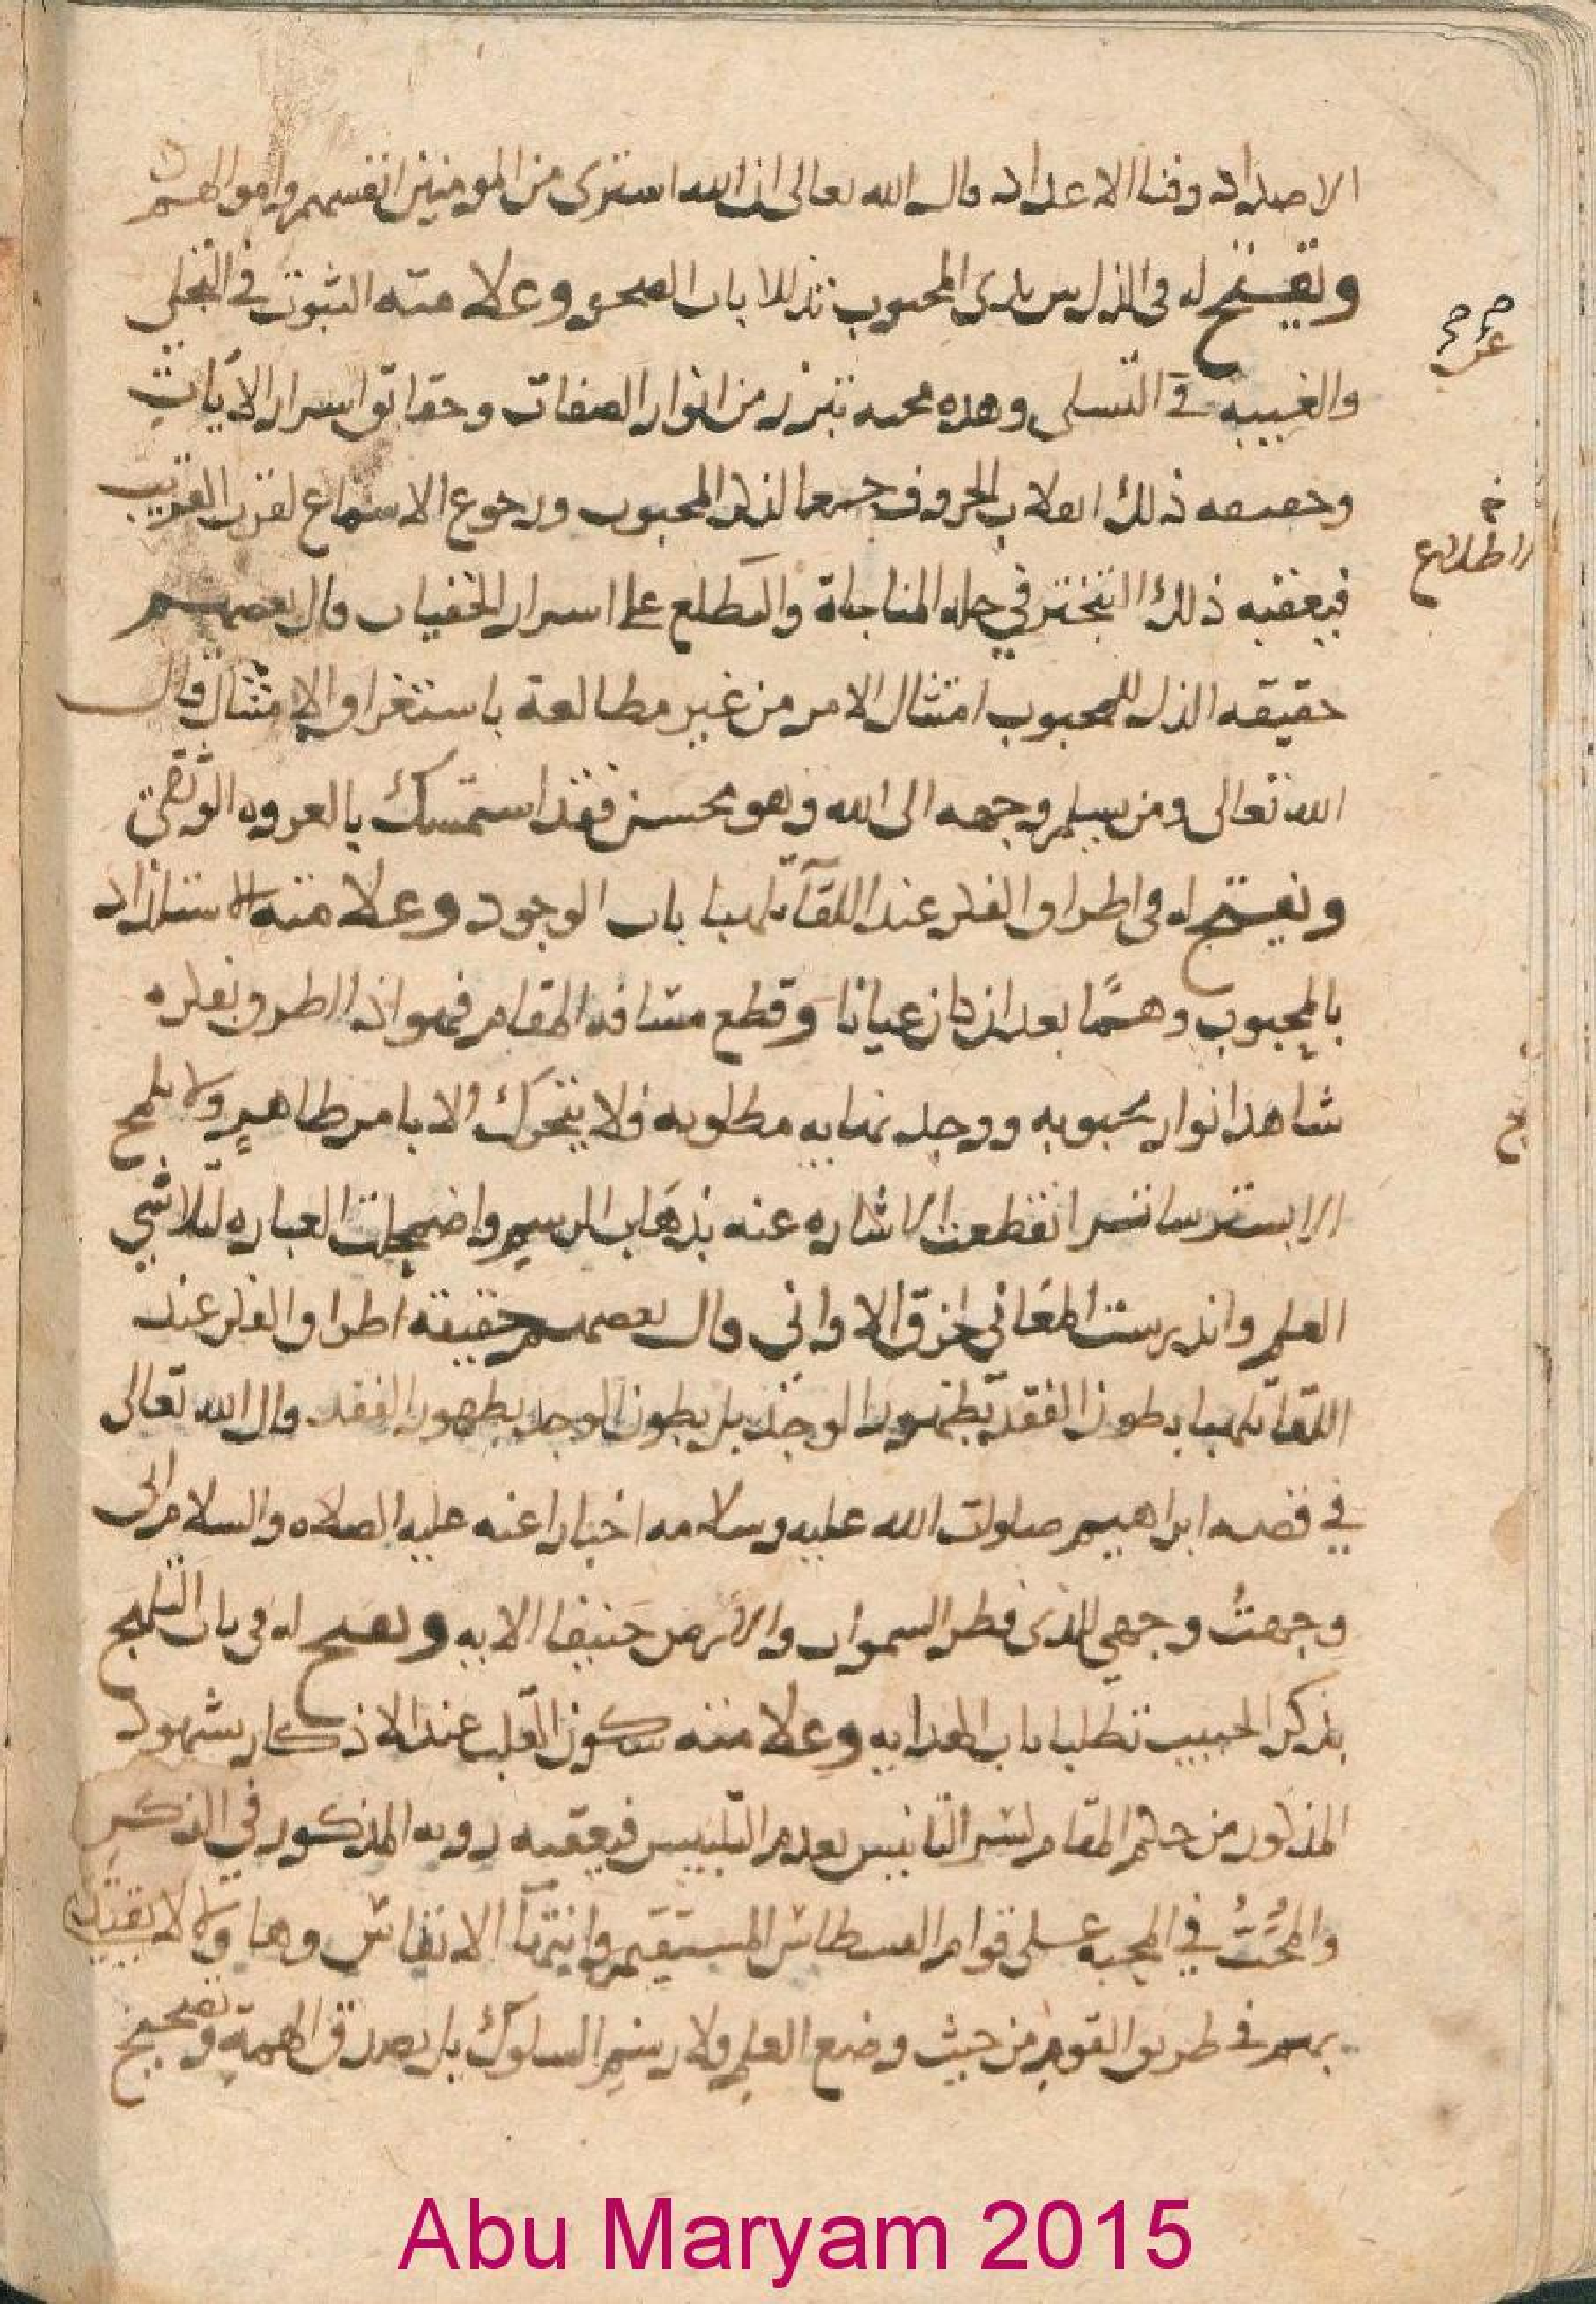 الاضداد وفنا الاعداد قال الله تعالى ان الله اشترى من المومنين انفسهم واموالهم
ويفتح له فى الذل بين يدى المحبوب تذللا باب الصحو وعلامته الثبوت في التجلى
والغيبية في التسلى وهذه محبه تبرز من انوار الصفات وحقائق اسرار الايات
وحقيقه ذلك انقلاب الحروف لذكر المحبوب ورجوع الاسماع لقرب القريب
فيعقبه ذلك التبختر في حله المناجاة والتطلع على اسرار الخفيات وقال بعضهم
حقيقه الذل للمحبوب امتثال الامر من غير مطالعة باستغراق الامتثال قال
الله تعالى ومن يسلم وجهه الى الله وهو محسن فقد استمسك بالعروه الوثقى
ويفتح له فى اطراق الفكر عند اللقا تهيبا باب الوجود وعلامته الاستلذاذ
بالمحبوب وهما بعد ان كان عيانا وقطع مسافه المقام فهو اذا اطرق بفكره
شاهد انوار محبوبه ووجد نهايه مطلوبه فلا يتحرك الا بامر ظاهر ولا يلمح
الا بستر ساتر انقطعت الاشاره عنه بذهاب الرسم واضمحلت العباره لتلاشي
العلم واندرست المعاني لخرق الاواني وقال بعضهم حقيقة اطراق الفكر عند
اللقا تهيبا بطون الفقد بظهور الوجد بل بطون الوجد بظهور الفقد قال الله تعالى
في قصه ابراهيم صلوات الله عليه وسلامه اخبارا عنه عليه الصلاه والسلام انى
وجهت وجهي للذى فطر السموات والارض حنيفا الايه ويفتح له فى باب التلهج
بذكر الحبيب تطلبا باب الهدايه وعلامته سكون القلب عند الاذكار بشهود
المذكور من حكم المقام لسر التانيس بعدم التلبيس فيعقبه رويه المذكور في الذكر
والمحب في المحبه على قوام القسطاس المستقيم وانتها الانفاس وها ولا لا يقتدى
بهم في طريق القوم من حيث وضع العلم ولا رسم السلوك بل بصدق الهمة وتصحيح
الاطلاع
Abu Maryam 2015